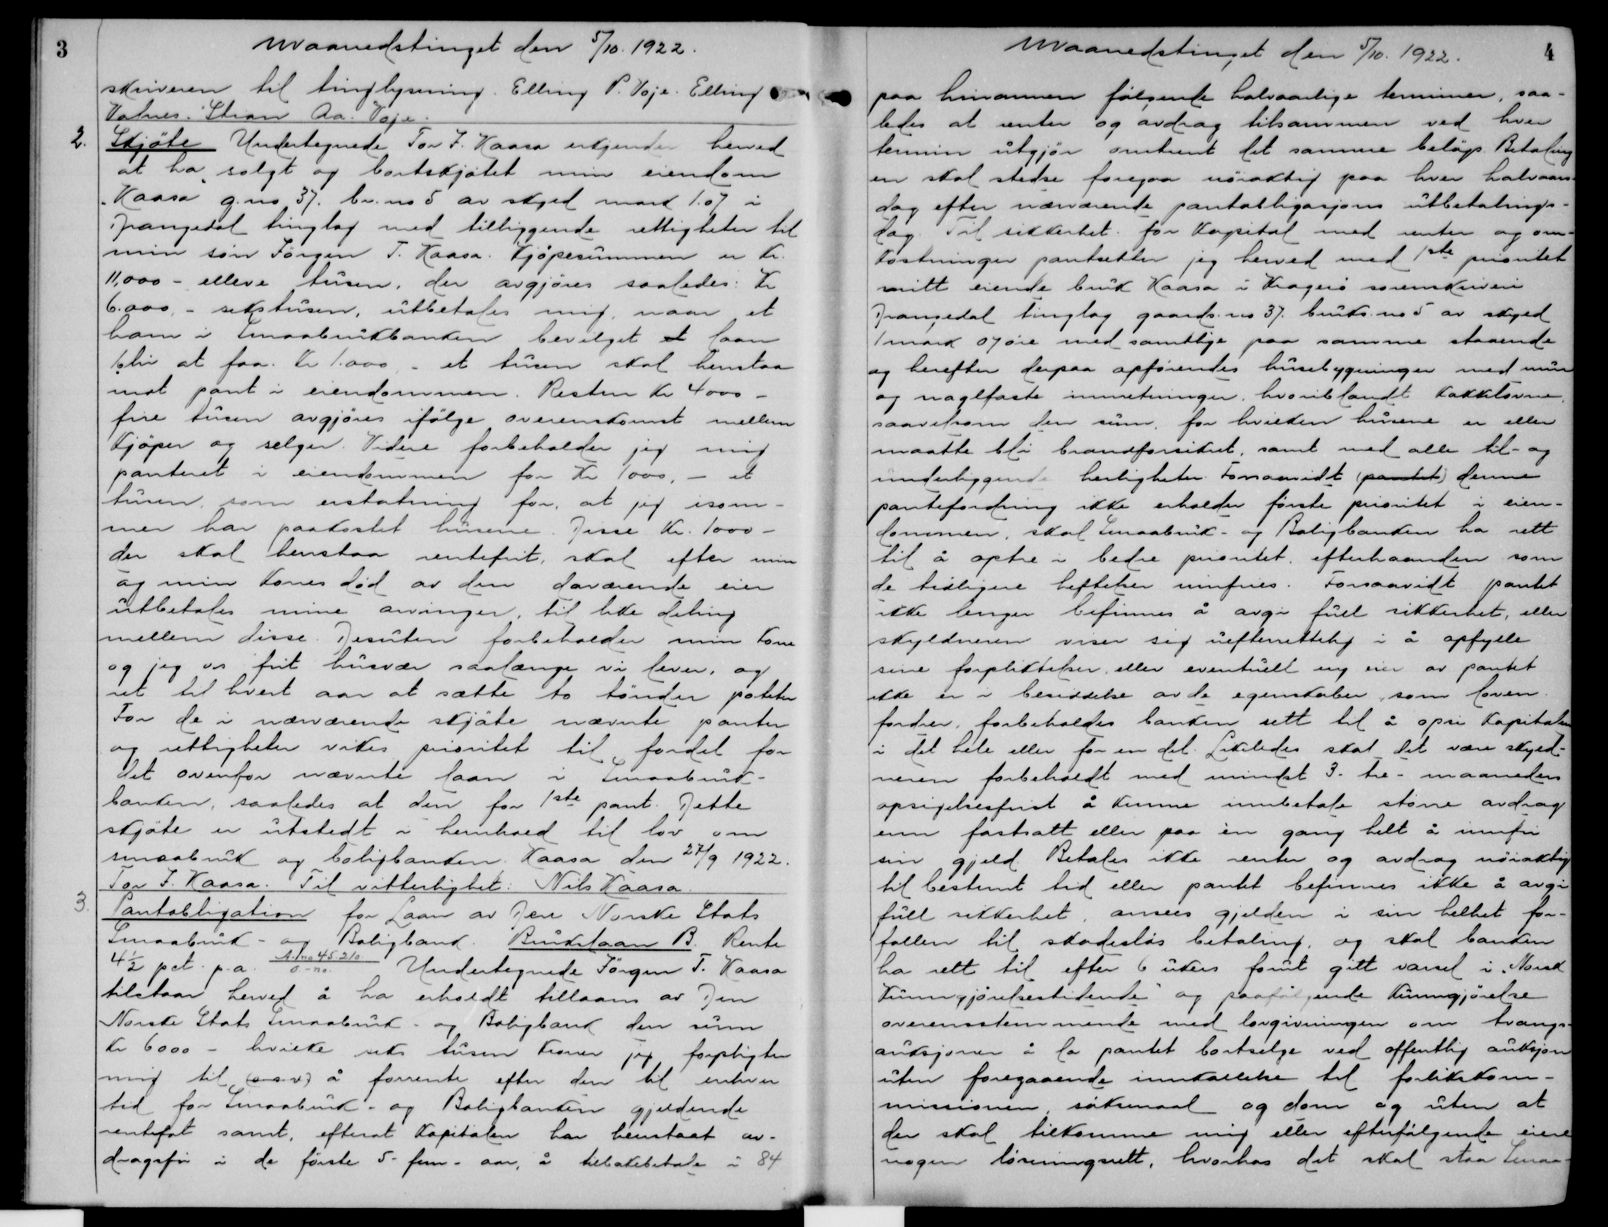 3
Maanedstinget den 5/10. 1922.
skriveren til tinglysning. Elling P. Voje. Elling
Valnes. Stian Aa. Voje.
2. Skjöte Undertegnede Tor J. Kaasa erkjender herved
at ha solgt og bortskjötet min eiendom
"Kaasa" g.no 37. br.no 5 av skyld mark 1.07 i
Drangedal tinglag med tilliggende rettigheter til
min sön Jörgen T. Kaasa. Kjöpesummen er kr.
11,000 - elleve tusen, der avgjöres saaledes: Kr
6.000,- sekstusen, utbetales mig, naar et
ham i Smaabrukbanken bevilget laan
blir at faa. Kr 1.000,- et tusen skal henstaa
mot pant i eiendommen. Resten kr 4000 -
fire tusen avgjöres ifölge overenskomst mellem
kjöper og selger. Videre forbeholder jeg mig
panteret i eiendommen for Kr 1000,- et
tusen, som erstatning for, at jeg isom-
mer har paakostet husene. Disse kr. 1000 -
der skal henstaa rentefrit, skal efter min
og min kones död av den daværende eier
utbetales mine arvinger, til like deling
mellem disse. Desuten forbeholder min kone
og jeg os frit husvær saalænge vi lever, og
ret til hvert aar at sætte to tönder poteter
For de i nærværende skjöte nævnte panter
og rettigheter vikes prioritet til fordel for
det ovenfor nævnte laan i Smaabruk-
banken, saaledes at den for 1ste pant. Dette
skjöte er utstedt i henhold til lov om
smaabruk og boligbanken. Kaasa den 27/9 1922.
Tor J. Kaasa. Til vitterlighet: Nils Kaasa.
3. Pantobligation for Laan av Den Norske Stats
Smaabruk- og Boligbank. Brukslaan B Rente
4½ pct. p.a. A. no 45210. o.-no. Undertegnede Jörgen T. Kaasa
tilstaar herved å ha erholdt tillaans av Den
Norske Stats Smaabruk- og Boligbank den sum
kr 6000 - hvilke seks tusen kroner jeg forpligter
mig til (o.s.v) å forrente efter den til enhver
tid for Smaabruk- og Boligbanken gjeldende
rentefot samt, efterat kapitalen har henstaat av-
dragsfri i de förste 5- fem- aar, å tilbakebetale i 84
4
Maanedstinget den 5/10. 1922.
paa hinannen fölgende halvaarlige terminer, saa-
ledes at renter og avdrag tilsammen ved hver
termin utgjör omtrent det samme belöp. Betaling
en skal stedse foregaa nöiaktig paa hver halvaars-
dag efter nærværende pantobligasjons utbetalings-
dag. Til sikkerhet for kapital med renter og om-
kostninger pantsetter jeg herved med 1ste prioritet
mitt eiende bruk Kaasa i Kragerö sorenskriveri
Drangedal tinglag gaards.no 37. bruks.no 5 av skyld
1 mark 07 öre med samtlige paa samme staaende
og herefter derpaa opförendes husebygninger med mur
og naglfaste innretninger, hvoriblandt kakkelovne,
saavelsom den sum, for hvilken husene er eller
maatte bli brandforsikret, samt med alle til- og
underliggende herligheter. Forsaavidt (pantet) denne
pantefordring ikke erholder förste prioritet i eien-
dommen, skal Smaabruk- og Boligbanken ha rett
til å optre i bedre prioritet, efterhaanden som
de tidligere heftelser innfries. Forsaavidt pantet
ikke lenger befinnes å avgi full sikkerhet, eller
skyldneren viser sig uefterrettelig i å opfylle
sine forpliktelser, eller eventuelt ny eier av pantet
ikke er i besiddelse av de egenskaber, som loven
fordrer, forbeholdes banken rett til å opsi kapitalen
i det hele eller for en del. Likeledes skal det være skyld-
neren forbeholdt med mindst 3- tre- maaneders
opsigelsesfrist å kunne innbetale större avdrag
enn fastsatt eller paa én gang helt å innfri
sin gjeld. Betales ikke renter og avdrag nöiaktig
til bestemt tid eller pantet befinnes ikke å avgi
full sikkerhet, ansees gjelden i sin helhet for-
fallen til skadeslös betaling, og skal banken
ha rett til efter 6 ukers forut gitt varsel i "Norsk
Kunngjörelsestidende" og paafölgende kunngjörelse
overensstemmende med lovgivningen om tvangs-
auksjoner å la pantet bortselge ved offentlig auksjon
uten foregaaende innkallelse til forlikskom-
missionen, söksmaal og dom og uten at
der skal tilkomme mig eller efterfölgende eiere
nogen lösningsrett, hvorhos det skal staa Smaa-